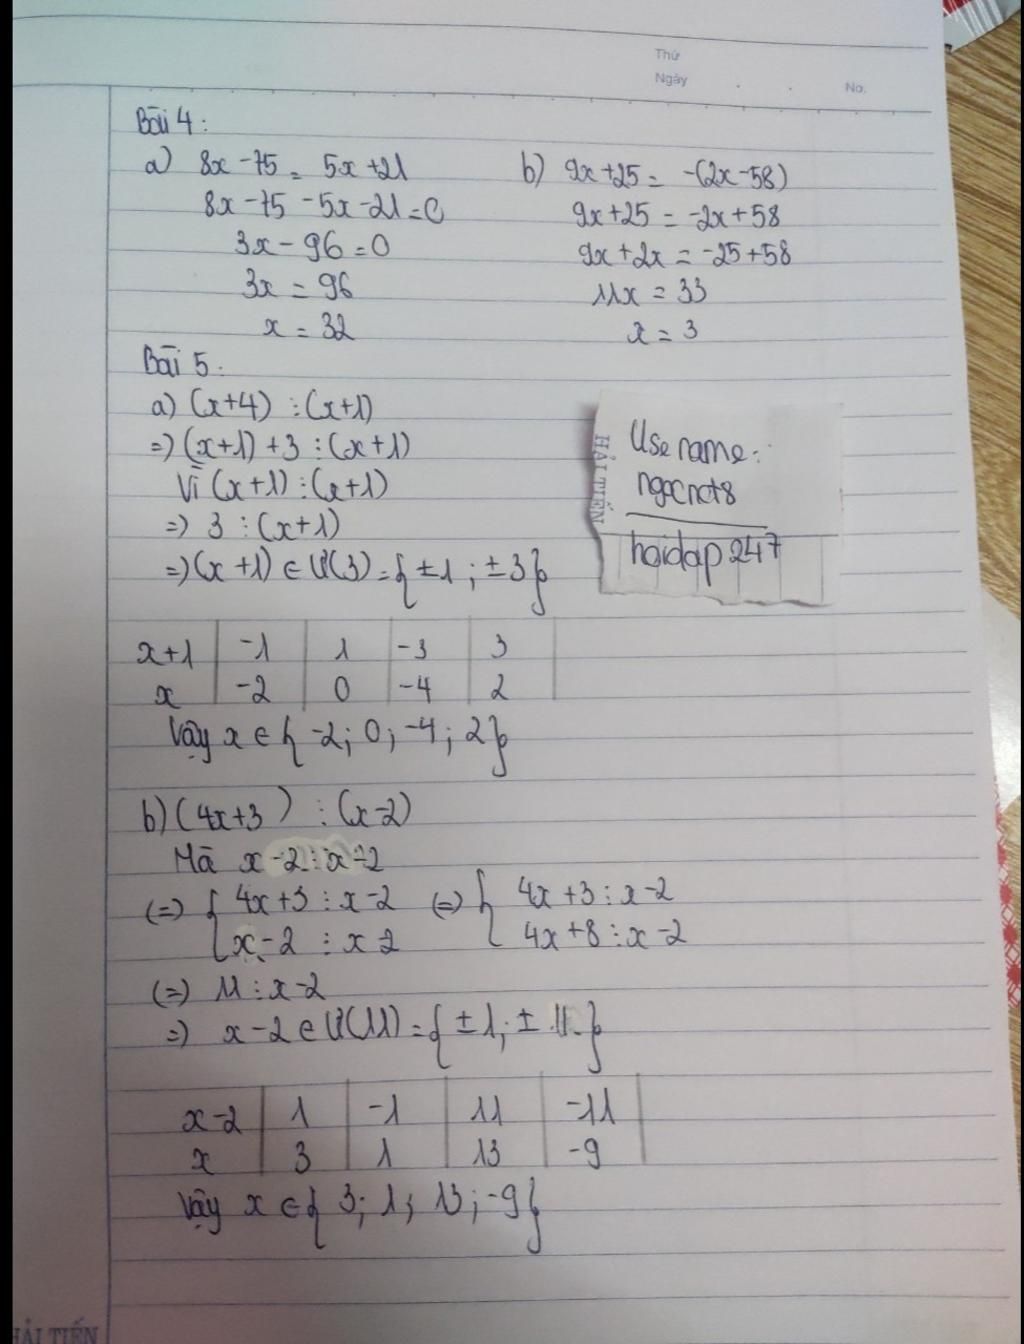 Thứ
Ngày
No.
Bài 4:
a) 8x - 75 = 5x + 21
8x - 75 - 5x - 21 = 0
3x - 96 = 0
3x = 96
x = 32
b) 9x + 25 = -(2x - 58)
9x + 25 = -2x + 58
9x + 2x = -25 + 58
11x = 33
x = 3
Bài 5.
a) (x+4) ⋮ (x+1)
=> (x+1) + 3 ⋮ (x+1)
Vì (x+1) ⋮ (x+1)
=> 3 ⋮ (x+1)
=> (x+1) ∈ Ư(3) = { ±1 ; ±3 }
x+1 | -1 | 1 | -3 | 3
x | -2 | 0 | -4 | 2
Vậy x ∈ { -2; 0; -4; 2 }
Use name:
ngocnct8
hoidap247
HẢI TIẾN
b) (4x+3) ⋮ (x-2)
Mà x-2 ⋮ x-2
(=) { 4x+3 ⋮ x-2 (=) { 4x+3 ⋮ x-2
x-2 ⋮ x-2 4x+8 ⋮ x-2
(=) 11 ⋮ x-2
=> x-2 ∈ Ư(11) = { ±1; ±11 }
x-2 | 1 | -1 | 11 | -11
x | 3 | 1 | 13 | -9
Vậy x ∈ { 3; 1; 13; -9 }
HẢI TIẾN